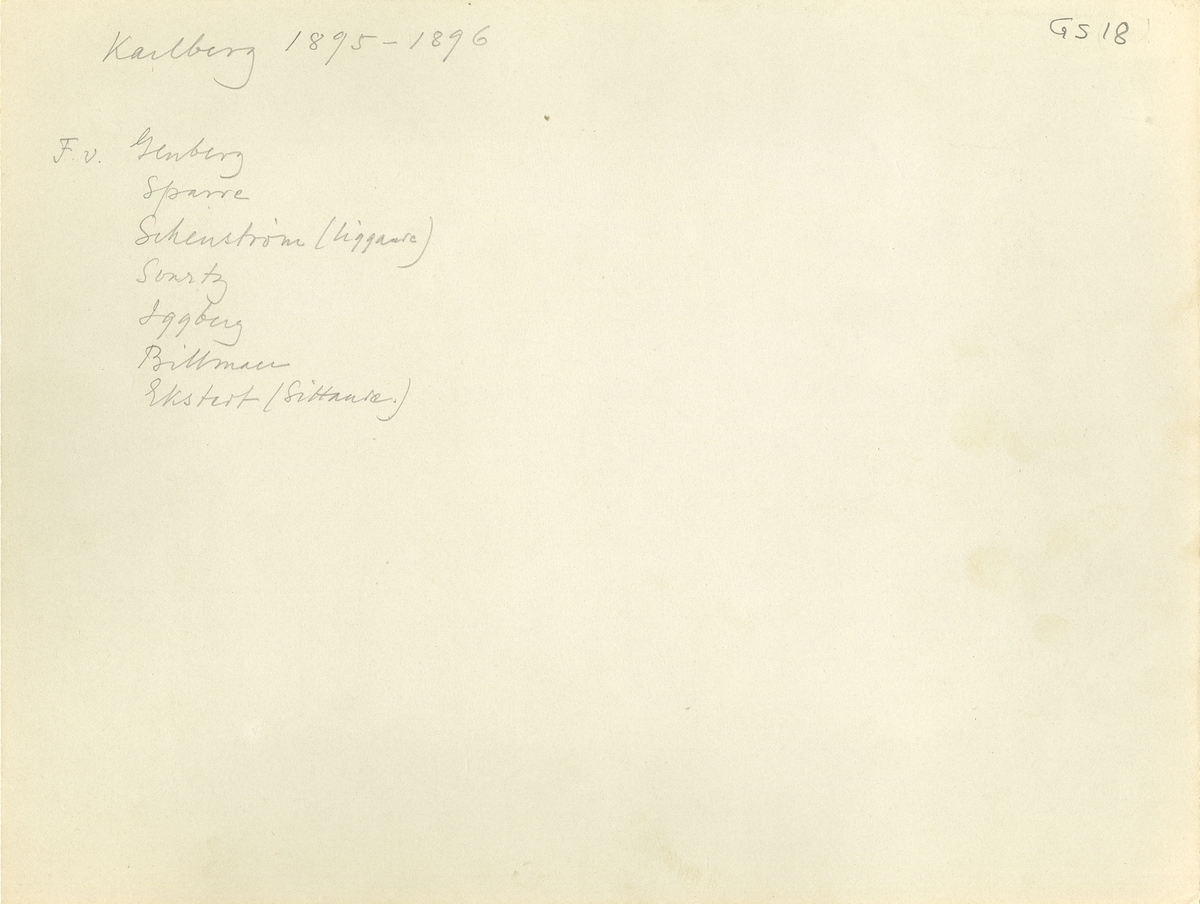 Karlberg 1895-1896
GS18
F. v. Genberg
Sparre
Schenström (liggande)
Svartz
Iggberg
Billman
Ekstedt (Sittande.)